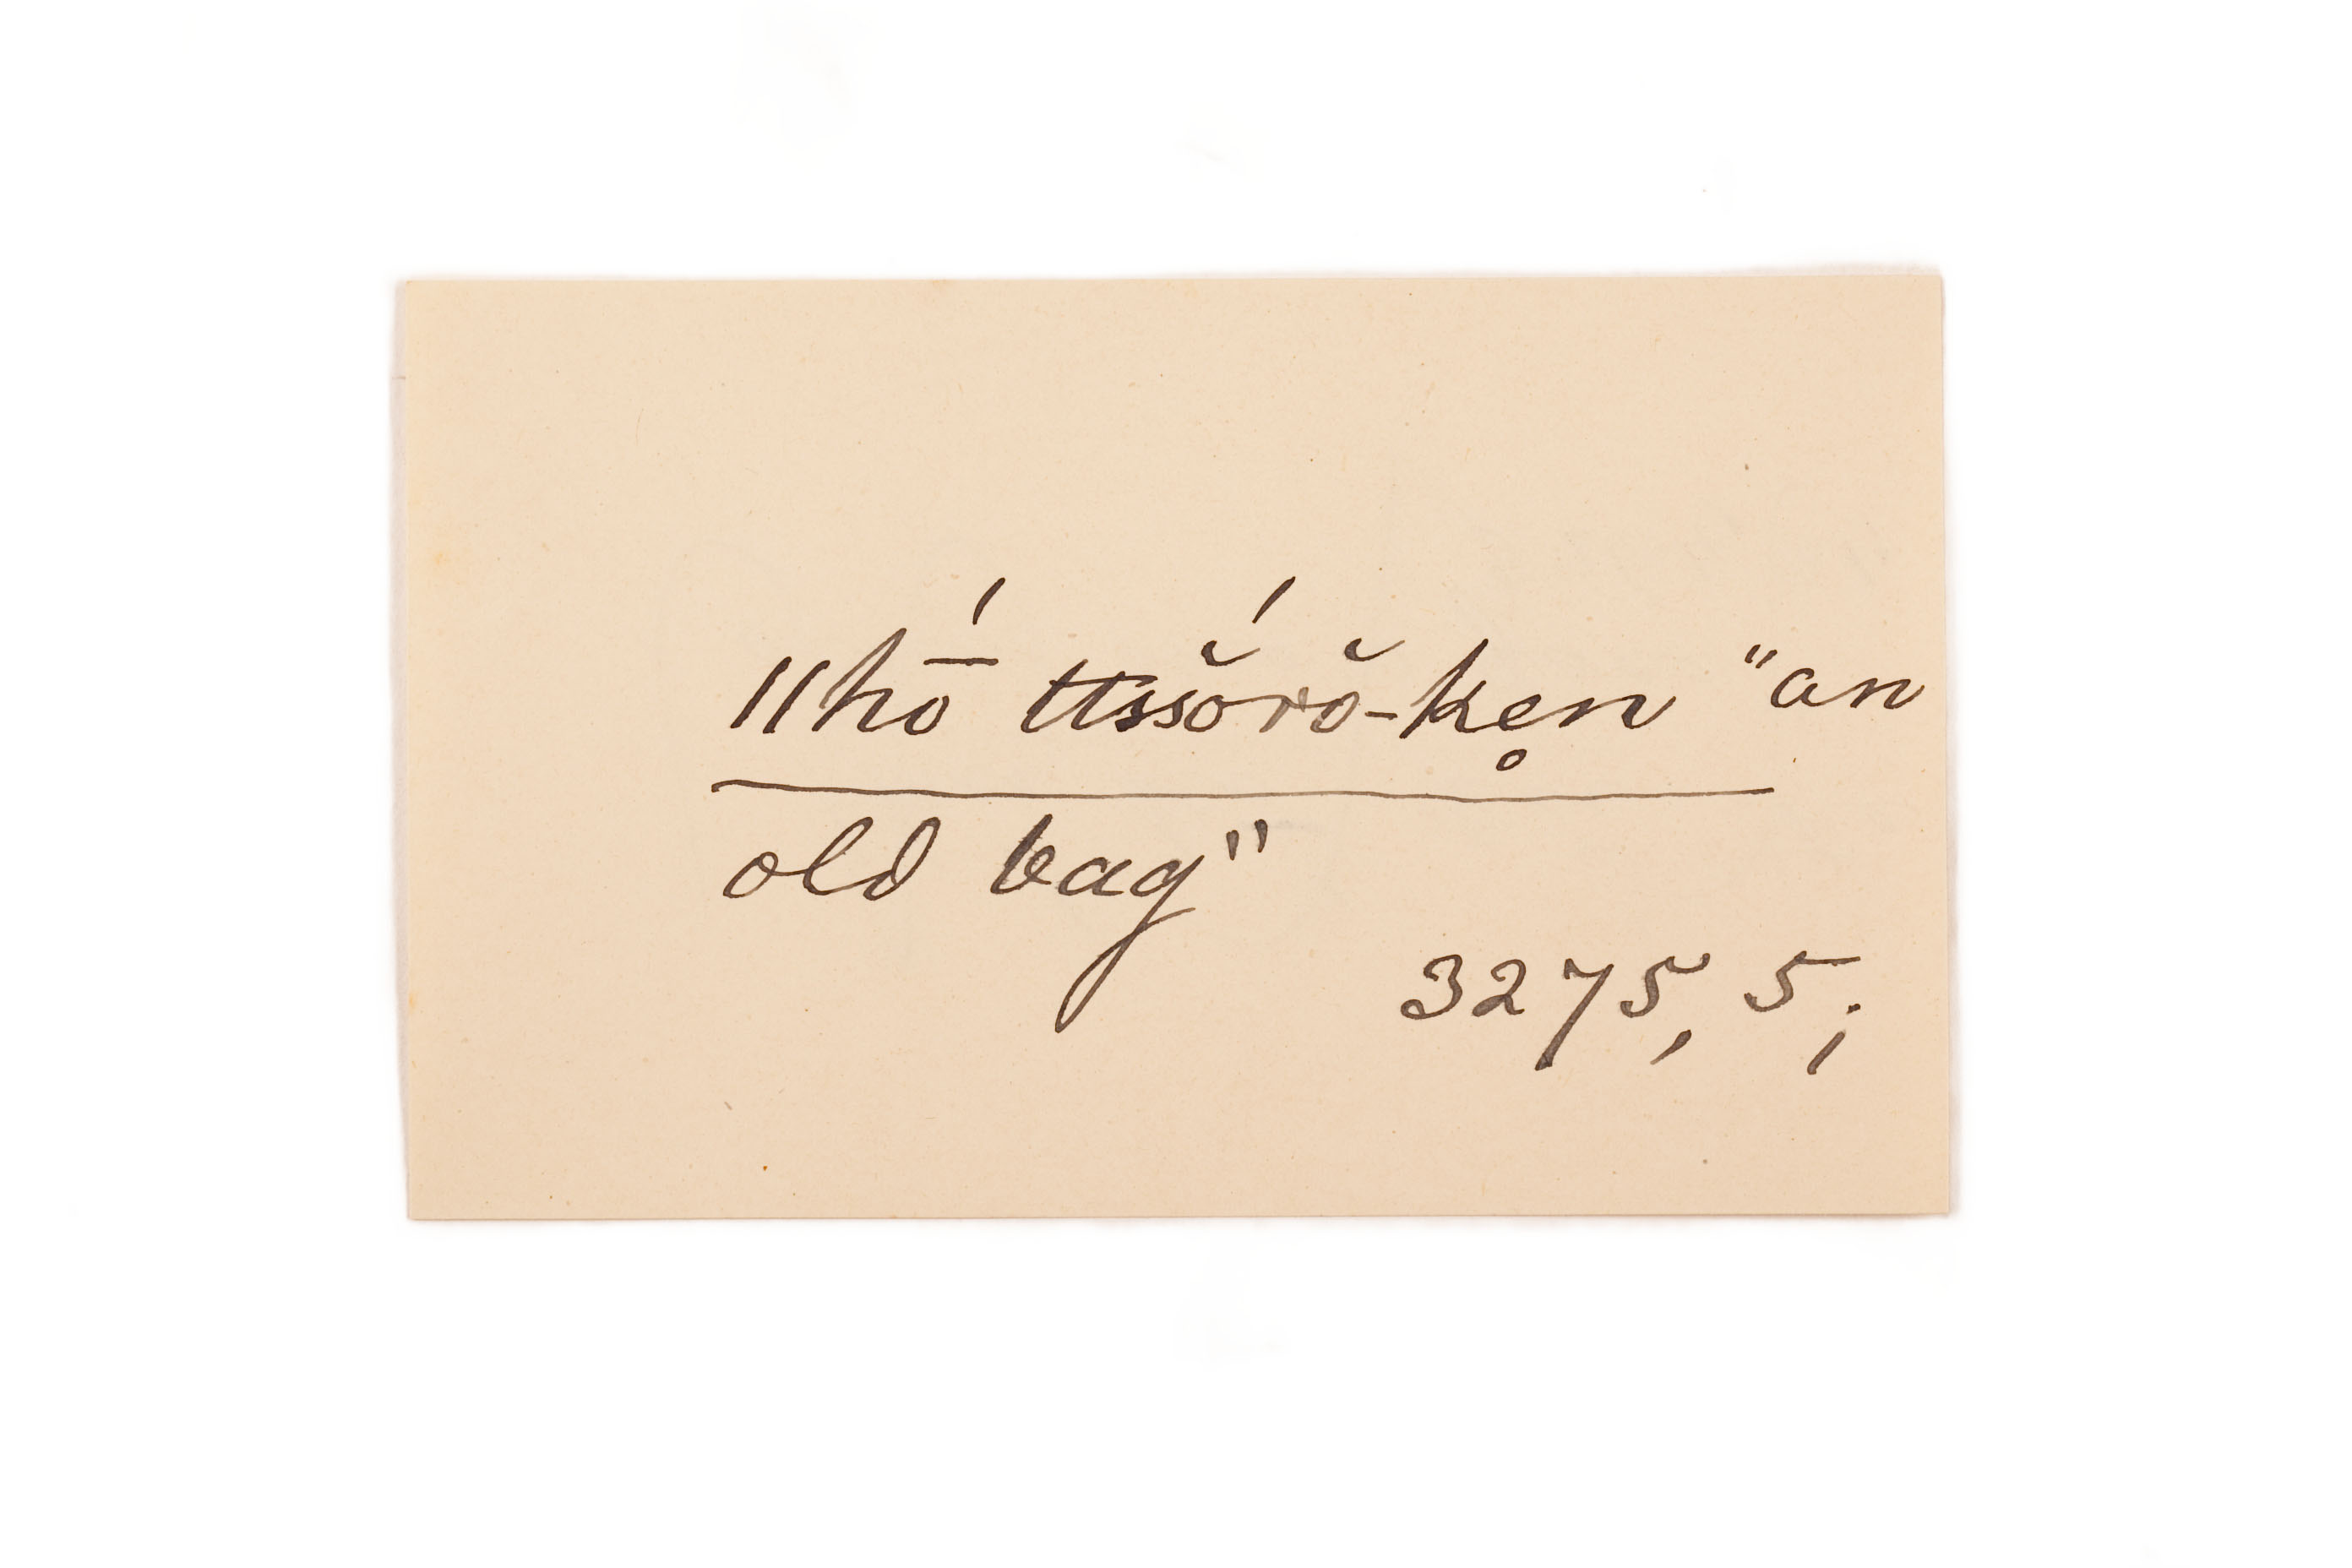 ǁhṓ ttssŏ́rŏ-ke̥n "an
old bag"
3275, 5;